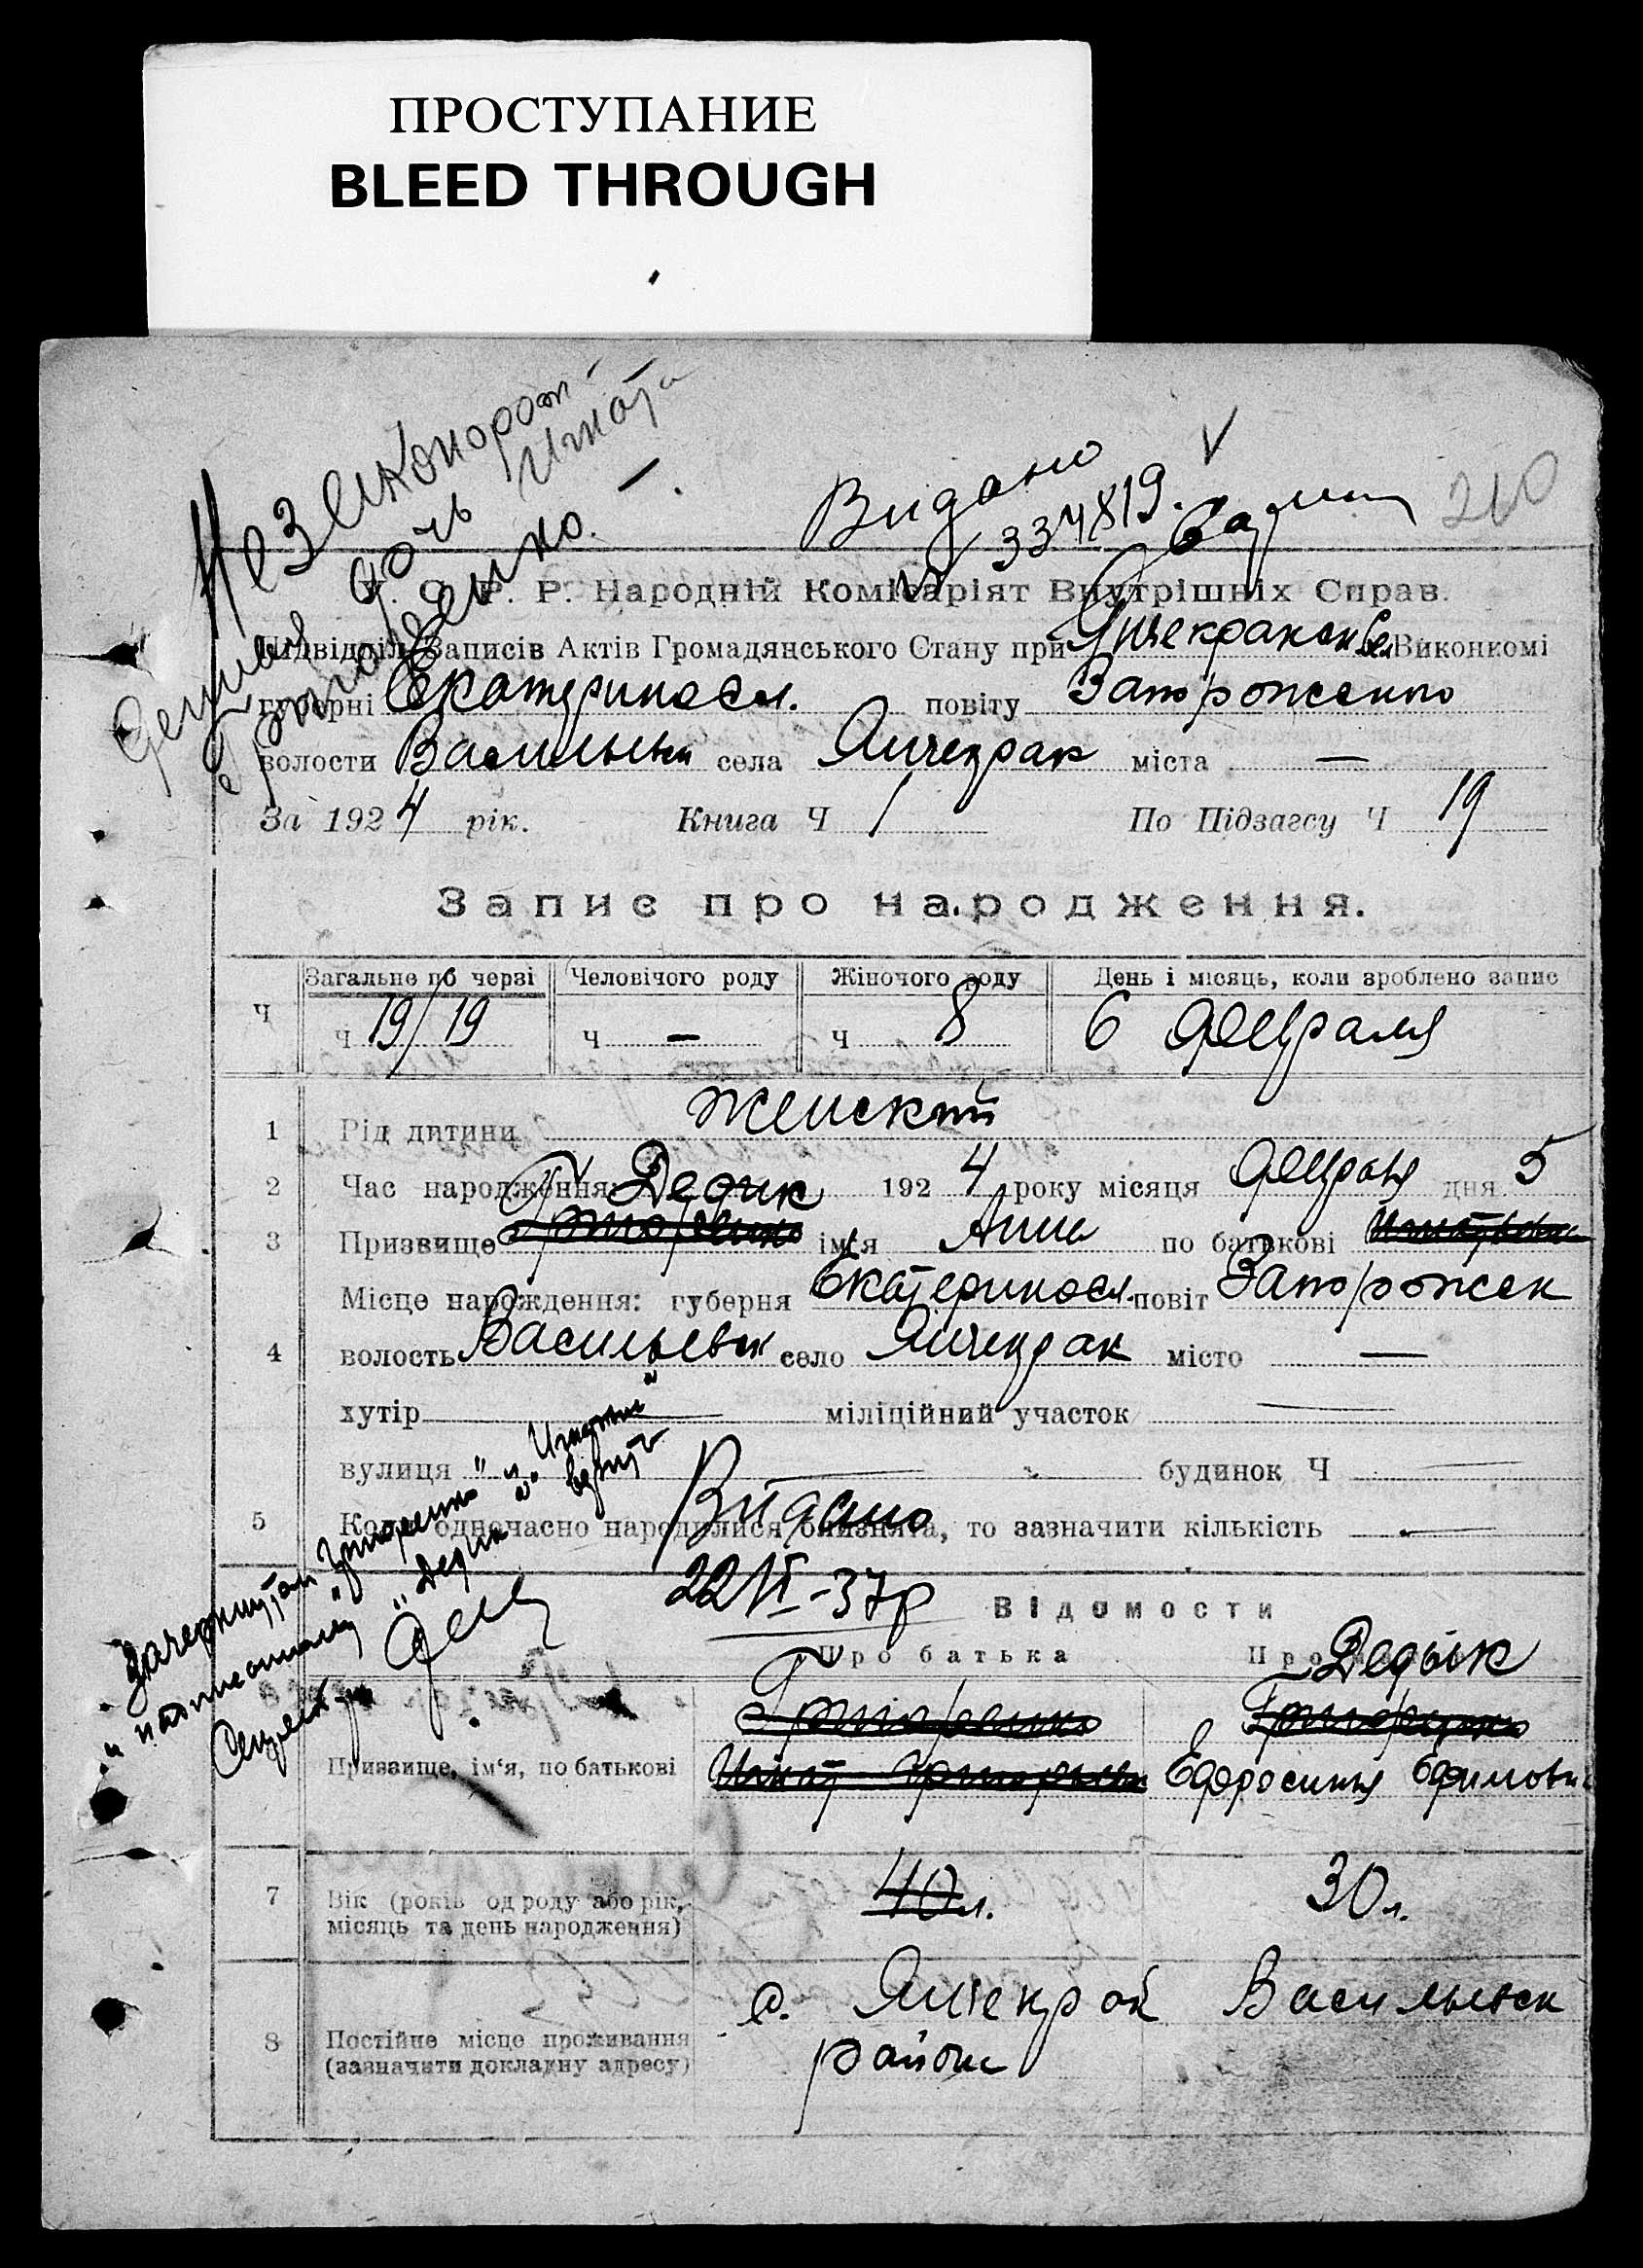 ПРОСТУПАНИЕ
BLEED THROUGH
Незаконорож
дочь Игната
Григоренко.
Видано
№ 334819.
210
У. С. Р. Р. Народній Комісаріят Внутрішніх Справ.
Підвідділ Записів Актів Громадянського Стану при Янчекракск Сел Виконкомі
губерні Екатериносл. повіту Запорожського
волости Васильевск села Янчекрак міста —
За 1924 рік. Книга Ч 1 По Підзагсу Ч 19
Запис про народження.
Загальне по черзі Человічого роду Жіночого роду День і місяць, коли зроблено запис
Ч Ч 19/19 Ч — Ч 8 6 февраля
1 Рід дитини женский
2 Час народження: 1924 року місяця февраля дня 5
Дедик
3 Призвище Григоренко ім'я Анна по батькові Игнатовна
Місце народження: губерня Екатериносл. повіт Запорожск
4 волость Васильевск село Янчекрак місто —
хутір — міліційний участок —
вулиця — будинок Ч —
5 Коли одночасно народилися близнята, то зазначити кількість —
Видано
22/VI-37р
Зачеркнутам "Григоренко" и "Игнатовна"
надписаному "Дедик" верить
Секретарь
Відомости
Про батька Про
Дедык
Григоренко Григоренко
Призвище, ім'я, по батькові Игнат Григорьев Ефросиния Ефимовн
7 Вік (років од роду або рік, місяць та день народження) 40 л. 30 л.
8 Постійне місце проживання (зазначити докладну адресу) с. Янчекрак Васильевск
района